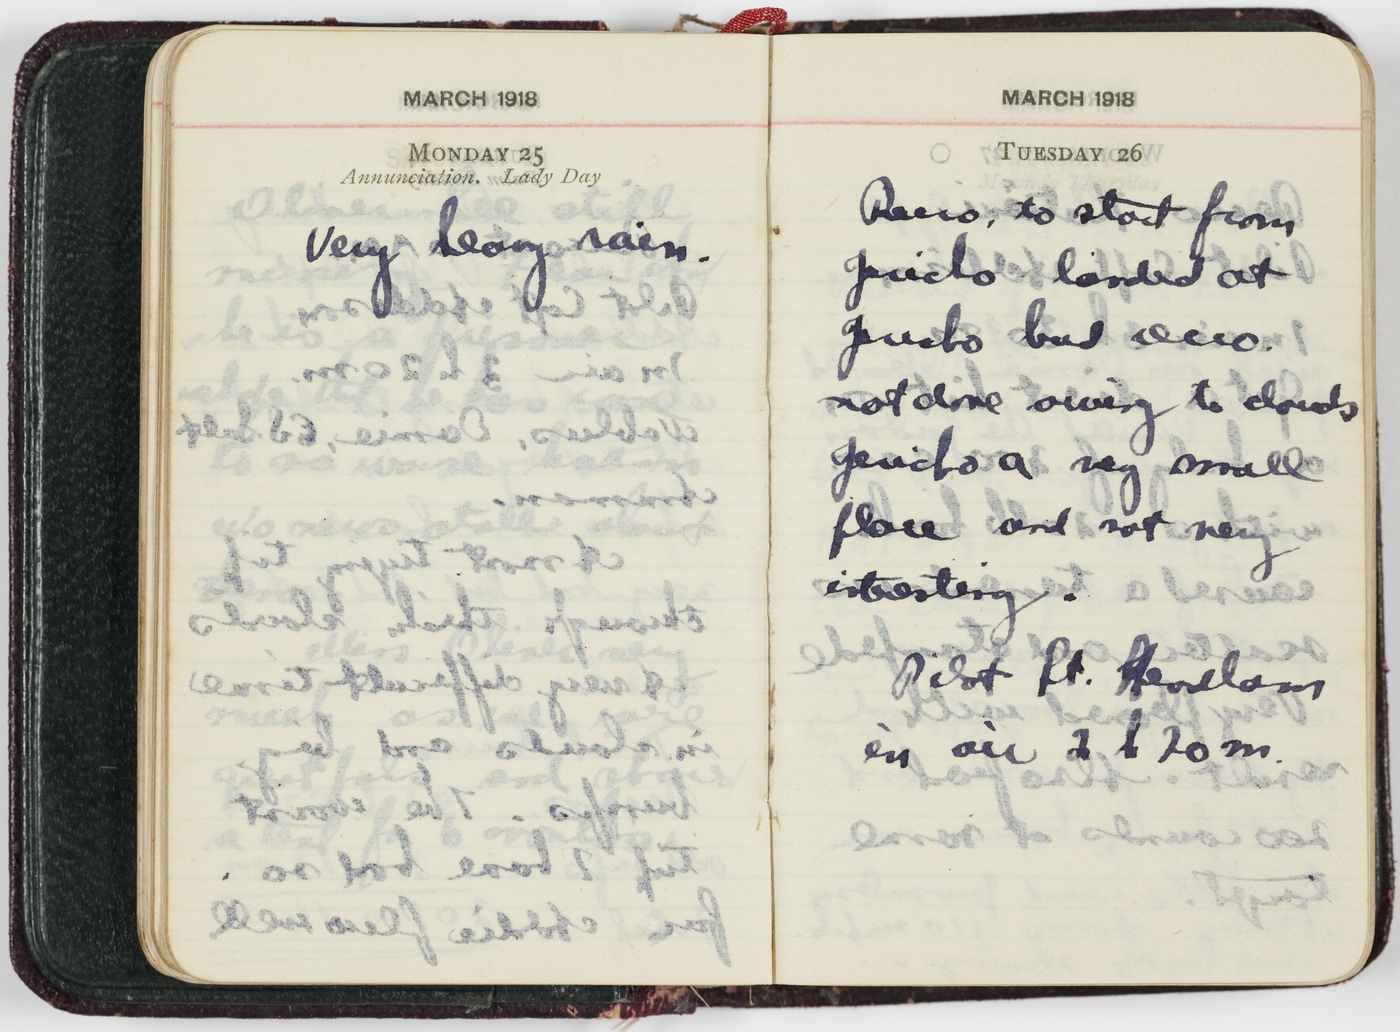 MARCH 1918
MONDAY 25
Annunciation. Lady Day
Very heavy rain.
MARCH 1918
TUESDAY 26
Recco, to start from
Jericho landed at
Jericho but recco.
not done owing to clouds
Jericho a very small
place and not very
interesting.
Pilot Lt.
in air h 20 m.